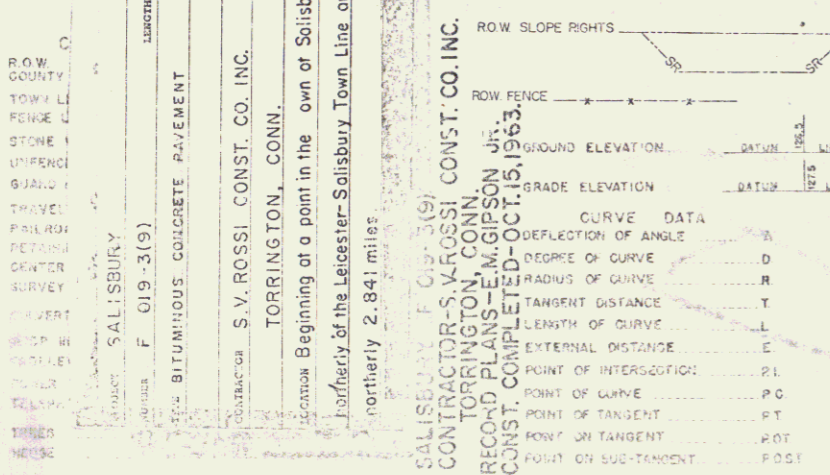 R.O.W.
COUNTY
TOWN L
FENCE L
STONE
UNFENC
GUARD
TRAVEL
RAILRO
RETAINI
CENTER
SURVEY
CULVERT
TREES
HEDGE
PROJECT SALISBURY
NUMBER F 019-3(9)
LENGTH
TYPE BITUMINOUS CONCRETE PAVEMENT
CONTRACTOR S.V. ROSSI CONST. CO. INC.
TORRINGTON, CONN.
LOCATION Beginning at a point in the own of Salisb
northerly of the Leicester-Salisbury Town Line a
northerly 2.841 miles.
SALISBURY F 019-3(9)
CONTRACTOR-S.V.ROSSI CONST. CO. INC.
TORRINGTON, CONN.
RECORD PLANS-E.M.GIPSON JR.
CONST. COMPLETED-OCT.15,1963.
R.O.W. SLOPE RIGHTS
SR SR
ROW. FENCE x x x
GROUND ELEVATION DATUM 126.5
GRADE ELEVATION DATUM 127.5
CURVE DATA
DEFLECTION OF ANGLE
DEGREE OF CURVE D
RADIUS OF CURVE R
TANGENT DISTANCE T.
LENGTH OF CURVE L
EXTERNAL DISTANCE E
POINT OF INTERSECTION P.I.
POINT OF CURVE P C
POINT OF TANGENT P T
POINT ON TANGENT P.O.T
POINT ON SUB-TANGENT P.O.S.T